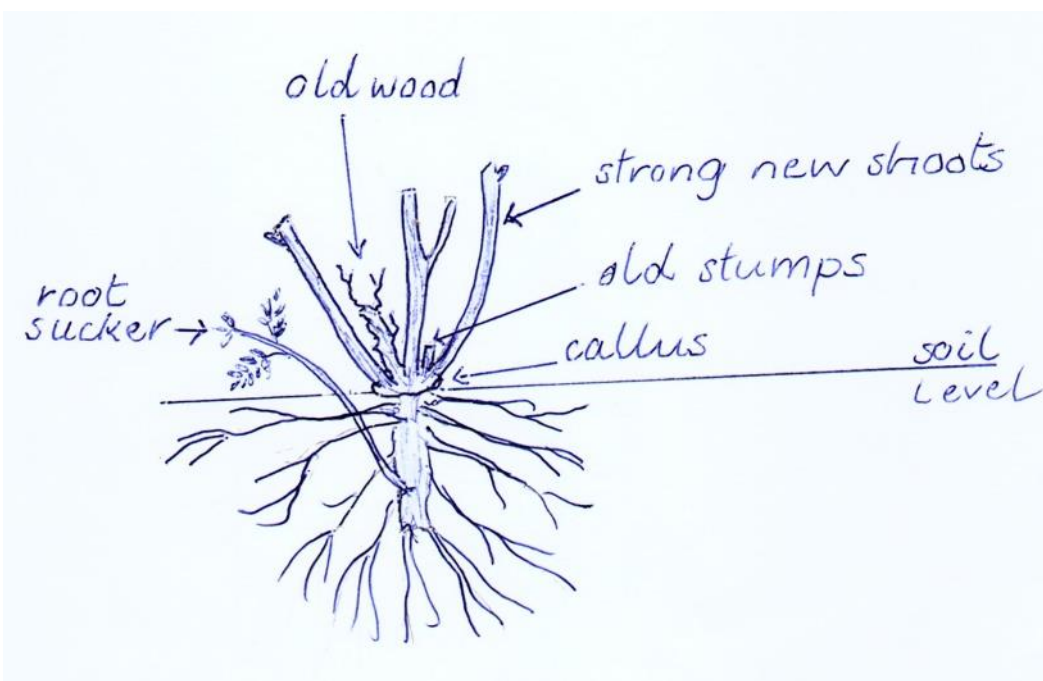 old wood
strong new shoots
old stumps
root
sucker
callus
soil
level